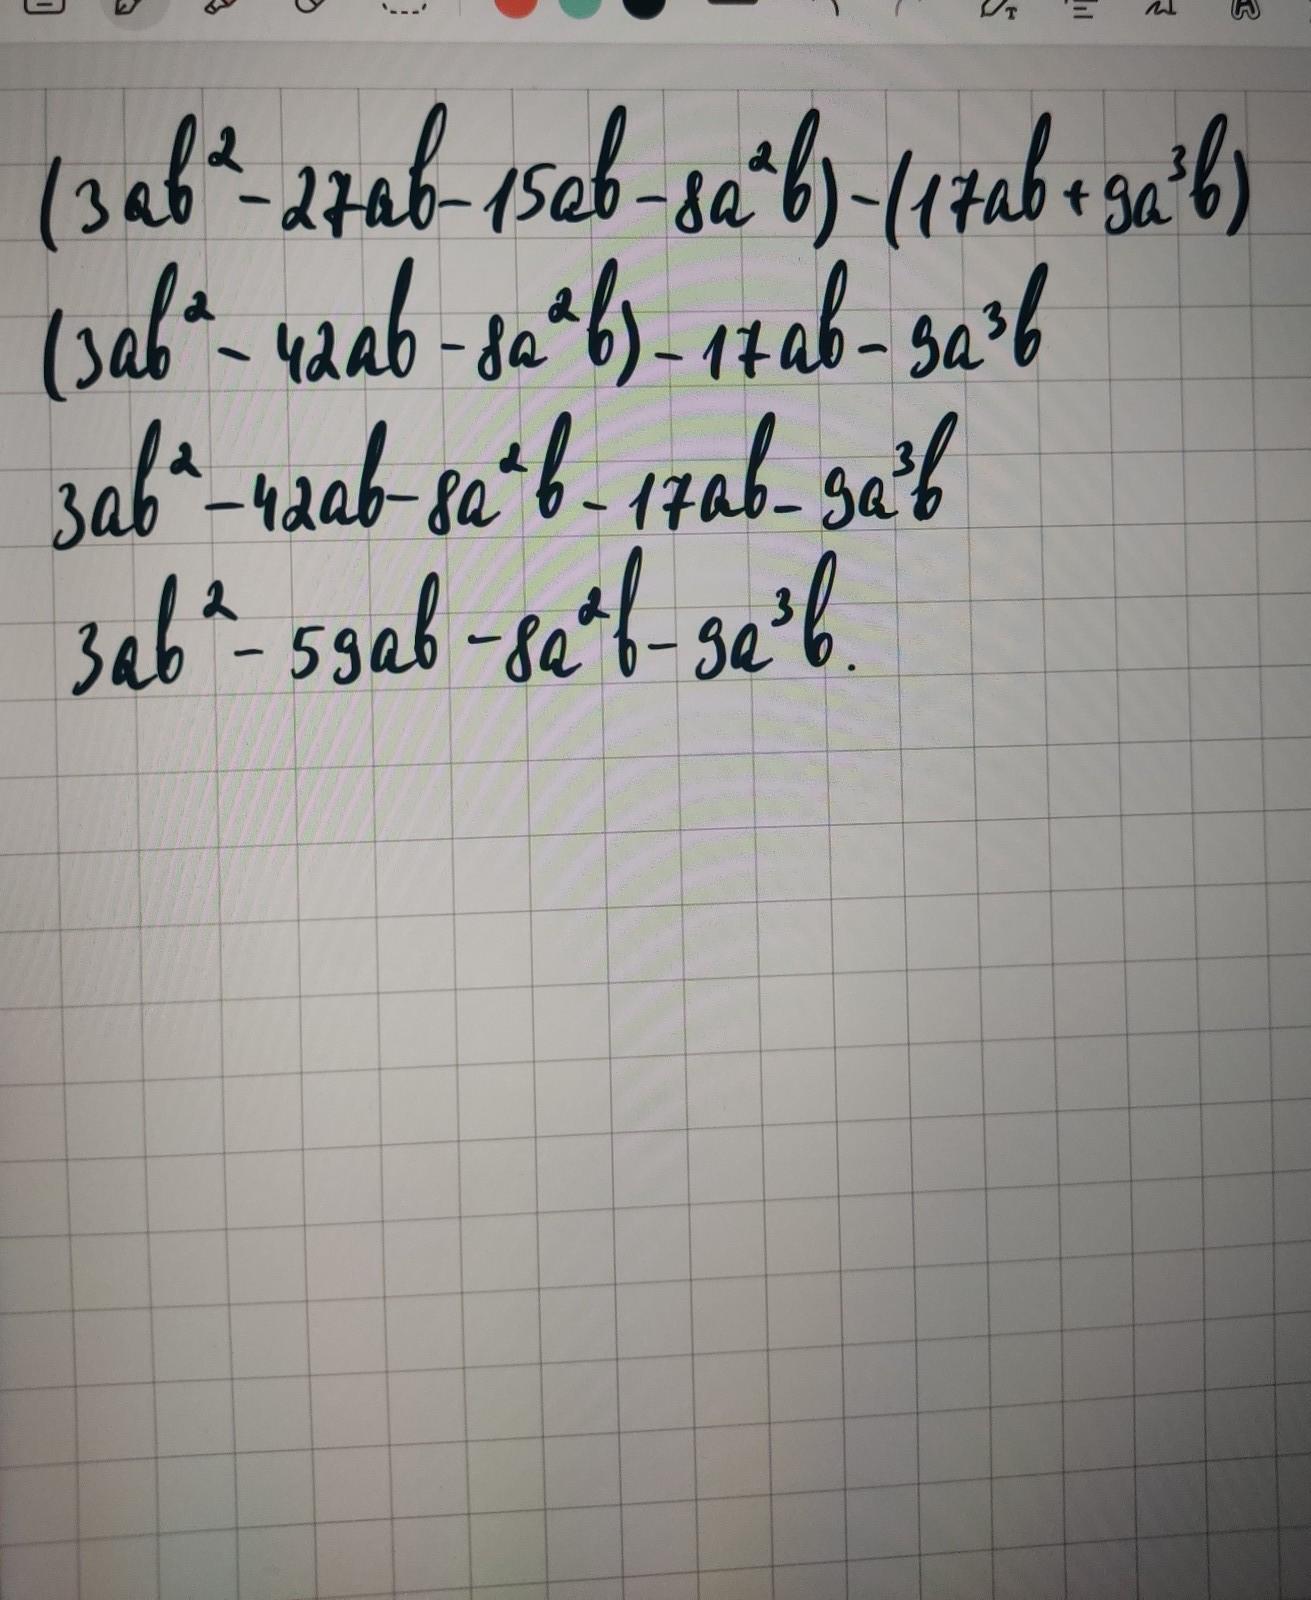 (3ab² - 27ab - 15ab - 8a²b) - (17ab + 9a³b)
(3ab² - 42ab - 8a²b) - 17ab - 9a³b
3ab² - 42ab - 8a²b - 17ab - 9a³b
3ab² - 59ab - 8a²b - 9a³b.